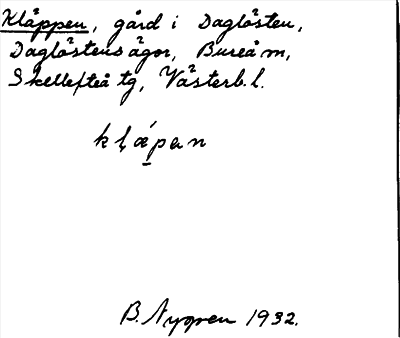 Kläppen, gård i Daglösten,
Daglöstens ägor, Bureå m,
Skellefteå tg, Västerb. l.
kl̥ǽp̠ɐn
B. Nygren 1932.